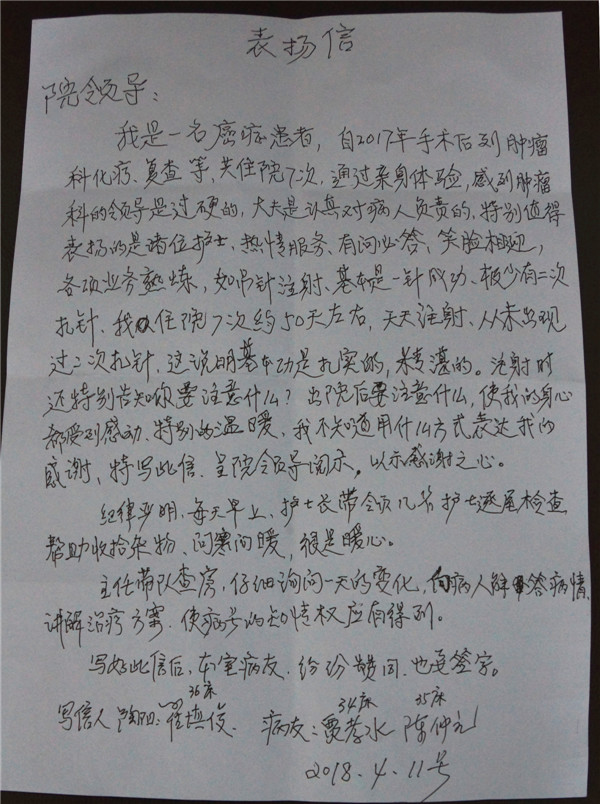 表扬信
院领导：
我是一名癌症患者，自2017年手术后到肿瘤
科化疗、复查等，共住院7次，通过亲身体验，感到肿瘤
科的领导是过硬的，大夫是认真对病人负责的，特别值得
表扬的是诸位护士、热情服务、有问必答、笑脸相迎，
各项业务熟炼，如吊针注射、基本是一针成功、极少有二次
扎针、我住院7次约50天左右，天天注射、从未出现
过二次扎针，这说明基本功是扎实的，精湛的。注射时
还特别告知你要注意什么？出院后要注意什么，使我的身心
都受到感动、特别的温暖、我不知道用什么方式表达我的
感谢，特写此信、呈院领导阅示，以示感谢之心。
纪律严明，每天早上、护士长带领几名护士逐屋检查
帮助收拾杂物、问寒问暖，很是暖心。
主任带队查房，仔细询问一天的变化，向病人解答病情，
讲解治疗方案，使病号的知情权应有得到。
写好此信后，本室病友、纷纷赞同，也要签字。
36床 34床 35床
写信人 崔慎俊 病友：贾孝水 陈仲元
2018.4.11号